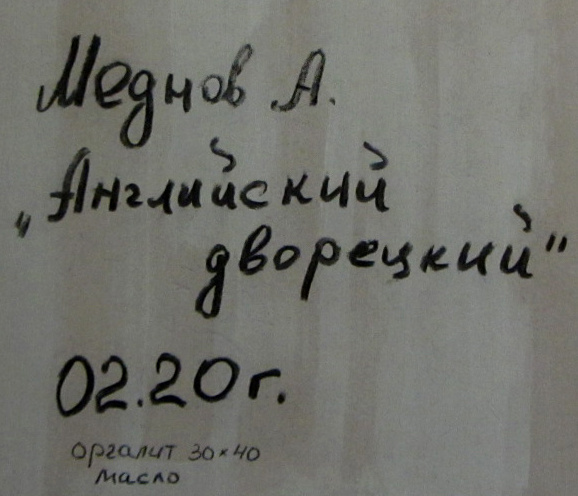 Меднов А.
„Английский
дворецкий"
02.20г.
оргалит 30×40
масло